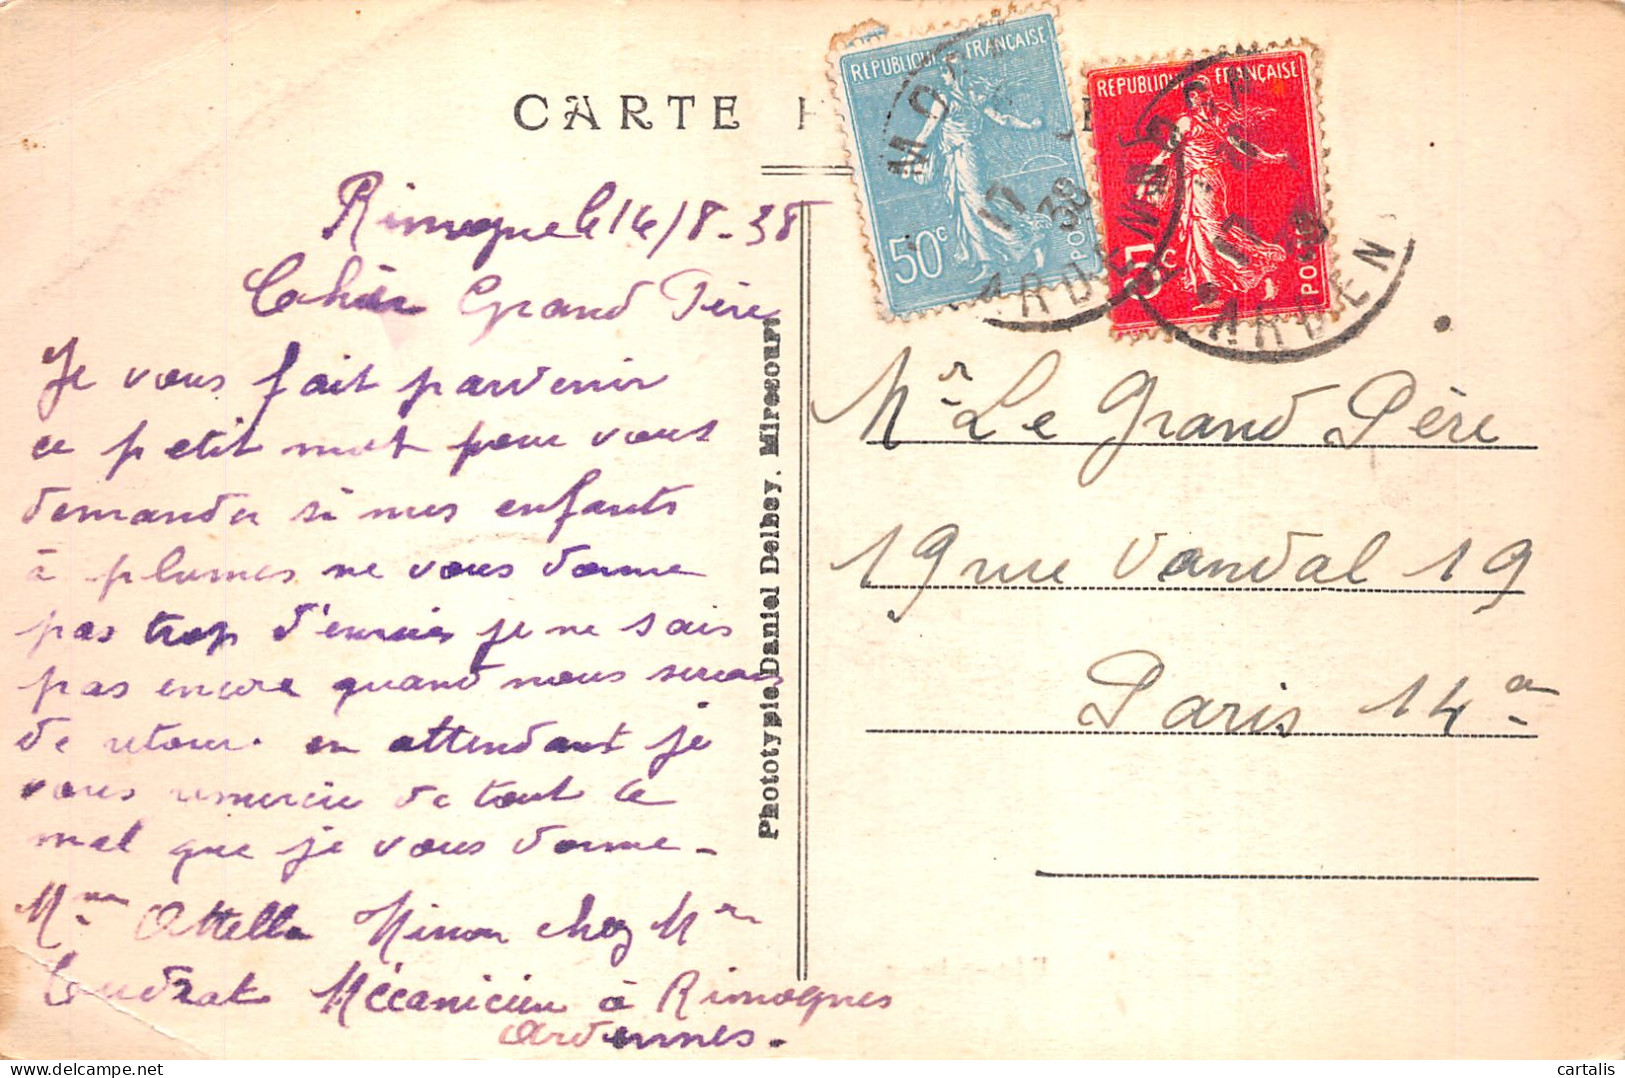 CARTE
REPUBLIQUE FRANÇAISE
50c
POSTES
REPUBLIQUE FRANÇAISE
5c
POSTES
17
38
ARDENNES
17
38
ARDEN
Rimogne le 16/8-38
Cahér Grand Père
Je vous fait parvenir
ce petit mot pour vous
demander si mes enfants
à plumes ne vous donne
pas trop d'ennuis je ne sais
pas encore quand nous serons
de retour. en attendant je
vous remercie de tout le
mal que je vous donne-
Mme Attella Ninon chez Mr
Cudrat Mécanicien à Rimognes
Ardennes.
Phototypie Daniel Delboy. Mirecourt
Mr Le Grand Père
19 rue Vandal 19
Paris 14e
cartalis